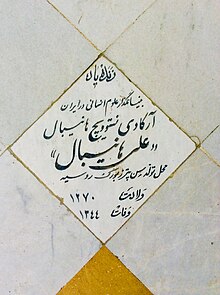 زندگی یاد
بنیانگذار علوم انسانی در ایران
آرکادی نستوویچ هانیبال
«علی هانیبال»
محل تولد سن پترزبورگ روسیه
ولادت ۱۲۷۰
وفات ۱۳۴۴